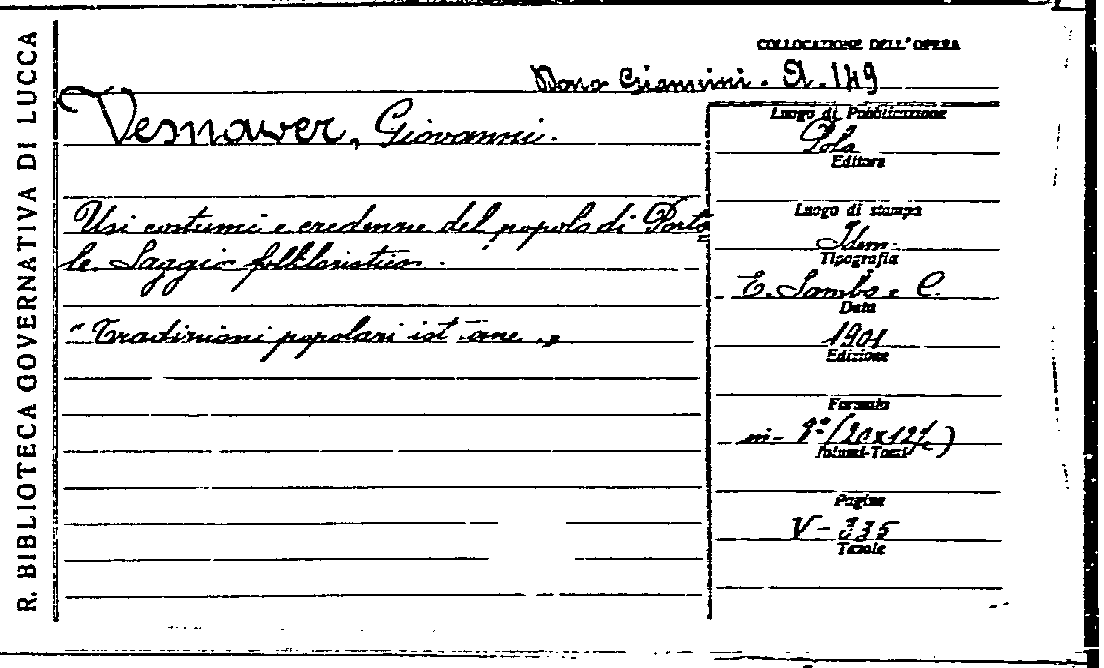 R. BIBLIOTECA GOVERNATIVA DI LUCCA
COLLOCAZIONE DELL'OPERA
Dono Giannini. A. 149
Vesnawer, Giovanni.
Usi costumi e credenze del popolo di Porto
le. Saggio folkloristico.
"Tradizioni popolari ist ane.„
Luogo di Pubblicazione
Pola
Editore
Luogo di stampa
Idem.
Tipografia
E. Sambo e C.
Data
1901
Edizione
Formato
in- (20x12½)
Volumi-Tomi
Pagine
V-335
Tavole